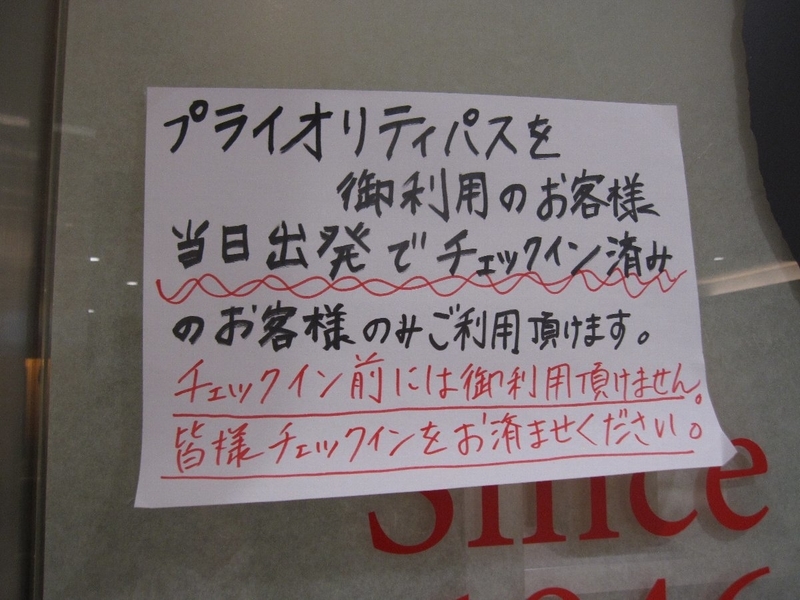 プライオリティパスを
御利用のお客様
当日出発でチェックイン済み
のお客様のみご利用頂けます。
チェックイン前には御利用頂けません。
皆様チェックインをお済ませください。
Since